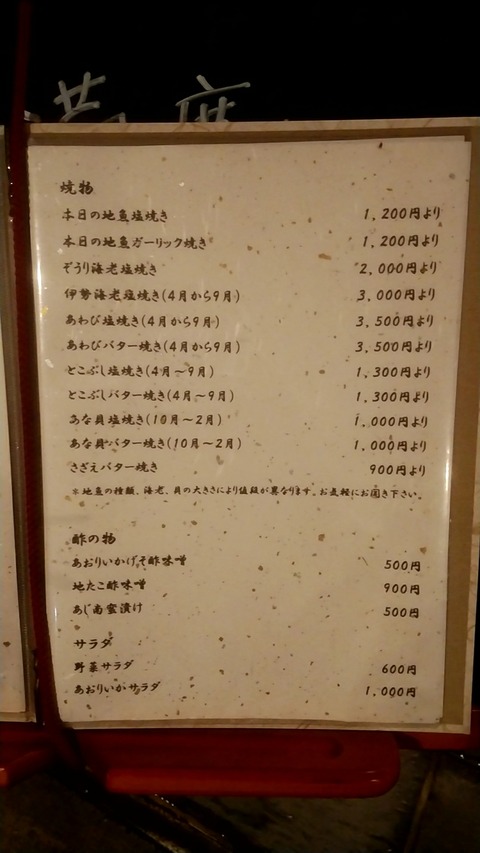 焼物
本日の地魚塩焼き 1,200円より
本日の地魚ガーリック焼き 1,200円より
ぞうり海老塩焼き 2,000円より
伊勢海老塩焼き(4月から9月) 3,000円より
あわび塩焼き(4月から9月) 3,500円より
あわびバター焼き(4月から9月) 3,500円より
とこぶし塩焼き(4月〜9月) 1,300円より
とこぶしバター焼き(4月〜9月) 1,300円より
あな貝塩焼き(10月〜2月) 1,000円より
あな貝バター焼き(10月〜2月) 1,000円より
さざえバター焼き 900円より
*地魚の種類、海老、貝の大きさにより値段が異なります。お気軽にお聞き下さい。
酢の物
あおりいかげそ酢味噌 500円
地たこ酢味噌 900円
あじ南蛮漬け 500円
サラダ
野菜サラダ 600円
あおりいかサラダ 1,000円